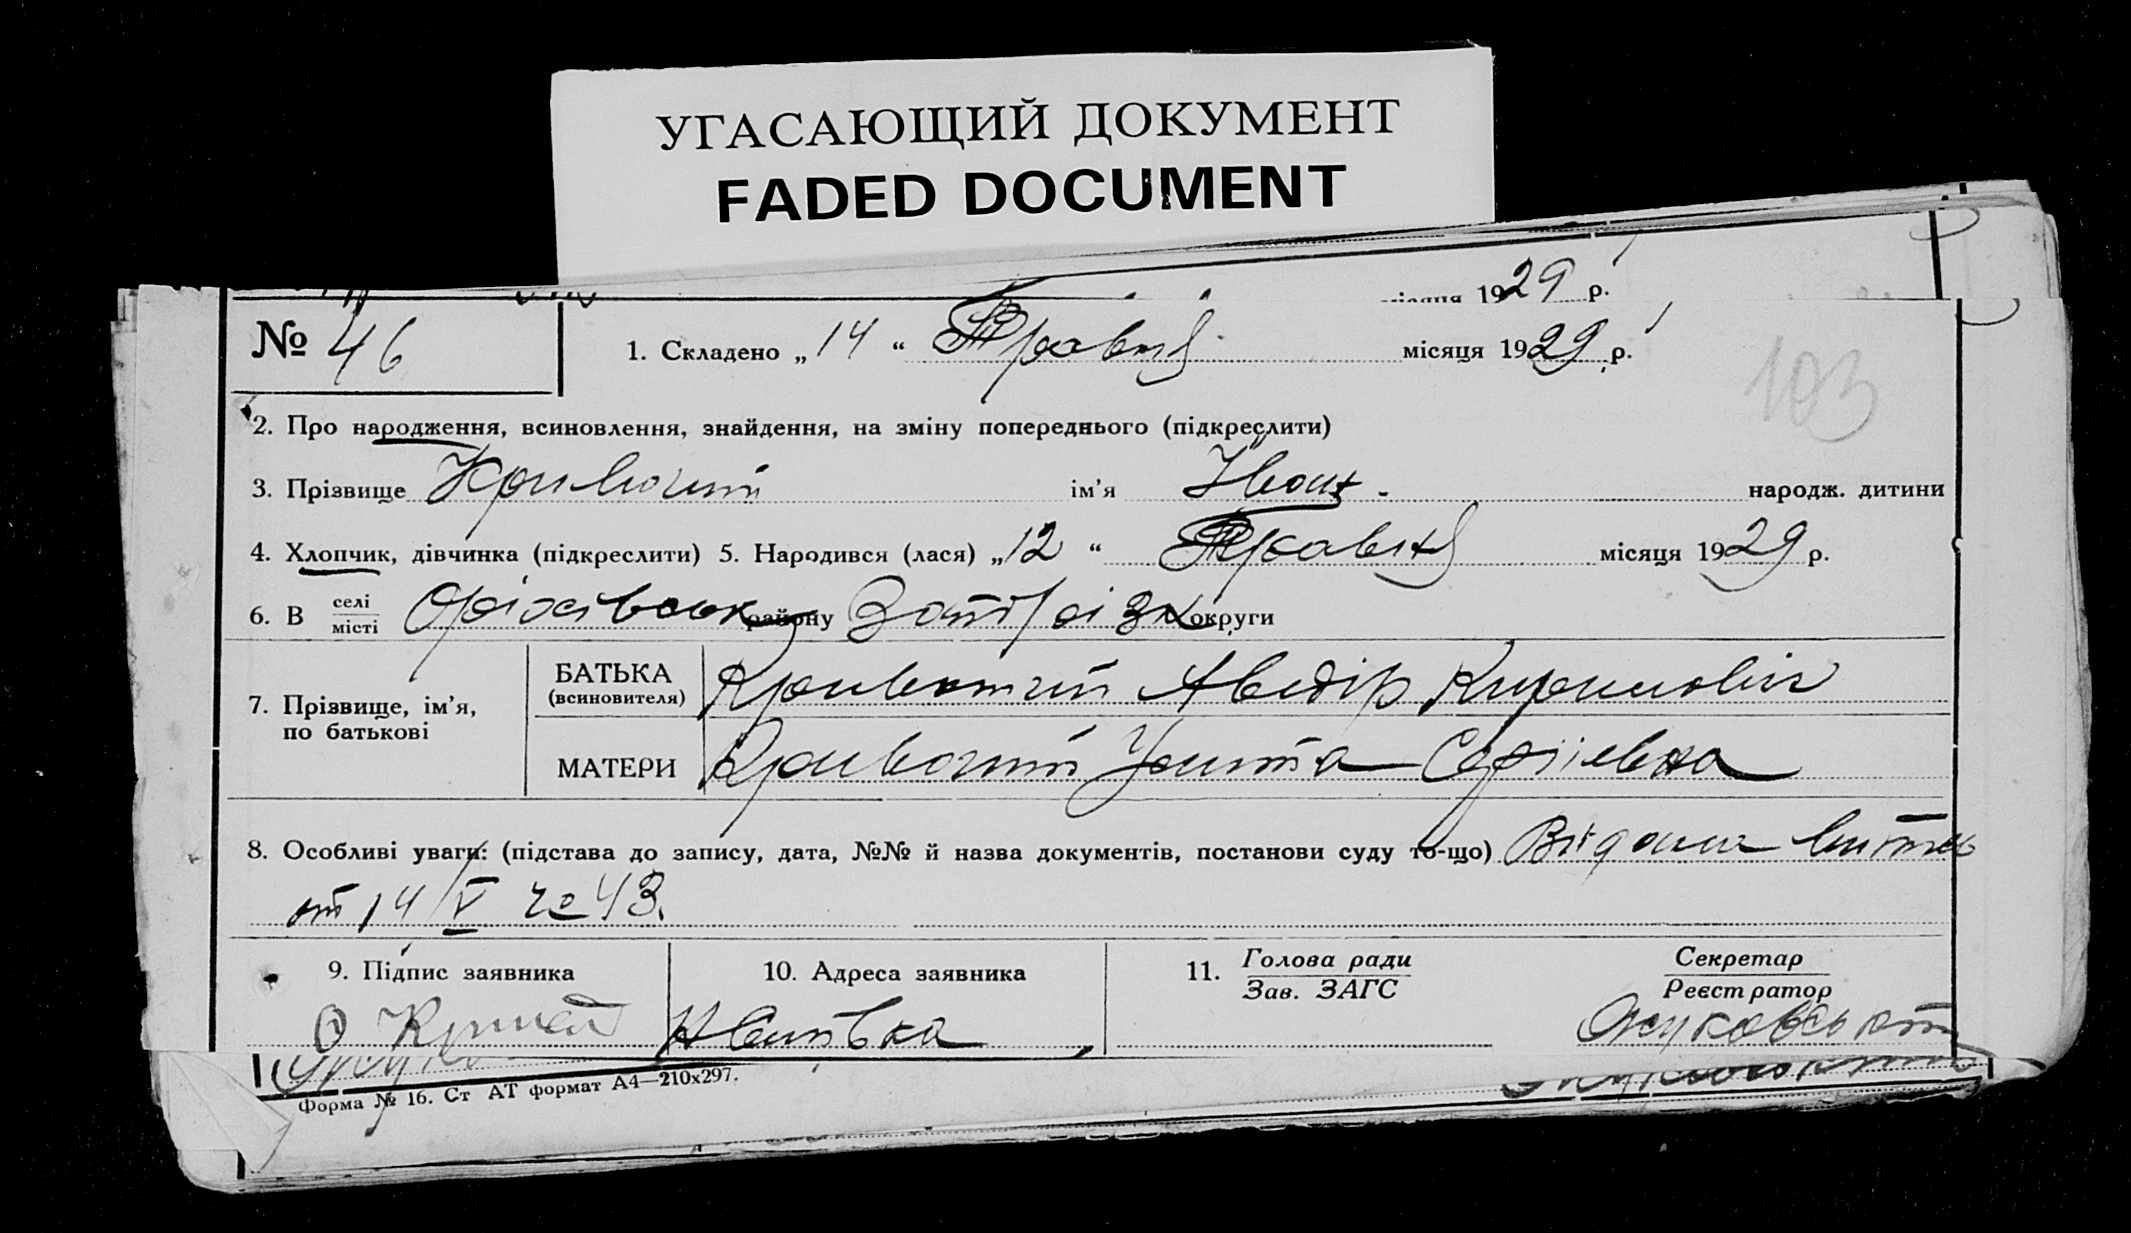 УГАСАЮЩИЙ ДОКУМЕНТ
FADED DOCUMENT
місяця 1929 р.
№ 46
1. Складено „ 14 “ Травня місяця 1929 р.
103
2. Про народження, всиновлення, знайдення, на зміну попереднього (підкреслити)
3. Прізвище ім'я Иван народж. дитини
4. Хлопчик, дівчинка (підкреслити) 5. Народився (лася) „ 12 “ Травня місяця 1929 р.
6. В селі місті Оріхівськ району Запорізк округи
7. Прізвище, ім'я, по батькові
БАТЬКА (всиновителя) Аведір Кирилович
МАТЕРИ Улита Сергіевна
8. Особливі уваги: (підстава до запису, дата, №№ й назва документів, постанови суду то-що) Видана витяг
от 14/V № 43.
9. Підпис заявника
10. Адреса заявника
11. Голова ради Зав. ЗАГС
Секретар Реєстратор
Форма № 16. Ст АТ формат А4—210х297.